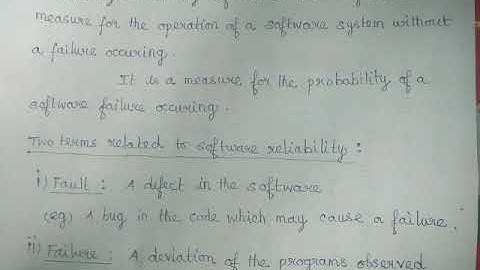 measure for the operation of a software system without
a failure occuring.
It is a measure for the probability of a
software failure occuring.
Two terms related to software reliability :
i) Fault : A defect in the software
(eg) A bug in the code which may cause a failure.
ii) Failure : A deviation of the programs observed